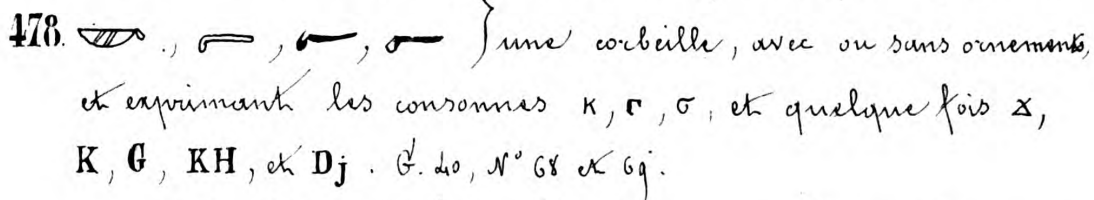 478. , , , } une corbeille, avec ou sans ornements,
et exprimant les consonnes κ, ⲅ, σ, et quelque fois ϫ,
K, G, KH, et Dj. Gd. 40, N° 68 et 69.